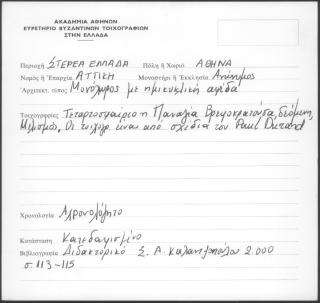 ΑΚΑΔΗΜΙΑ ΑΘΗΝΩΝ
ΕΥΡΕΤΗΡΙΟ ΒΥΖΑΝΤΙΝΩΝ ΤΟΙΧΟΓΡΑΦΙΩΝ
ΣΤΗΝ ΕΛΛΑΔΑ
Περιοχή ΣΤΕΡΕΑ ΕΛΛΑΔΑ Πόλη ή Χωριό ΑΘΗΝΑ
Νομός ή Ἐπαρχία ΑΤΤΙΚΗ Μοναστήρι ή Ἐκκλησία Ανώνυμος
Ἀρχιτεκτ. τύπος Μονόχωρος με ημικυκλική αψίδα
Τοιχογραφίες Τεταρτοσφαίριο η Παναγία Βρεφοκρατούσα, δεόμενη,
Μελισμός. Οι τοιχογρ. είναι από σχέδια του Paul Durand
Χρονολογία Αχρονολόγητο
Κατάσταση Κατεδαφισμένο
Βιβλιογραφία Διδακτορικό Σ. Α. 2.000
σ. 113-115